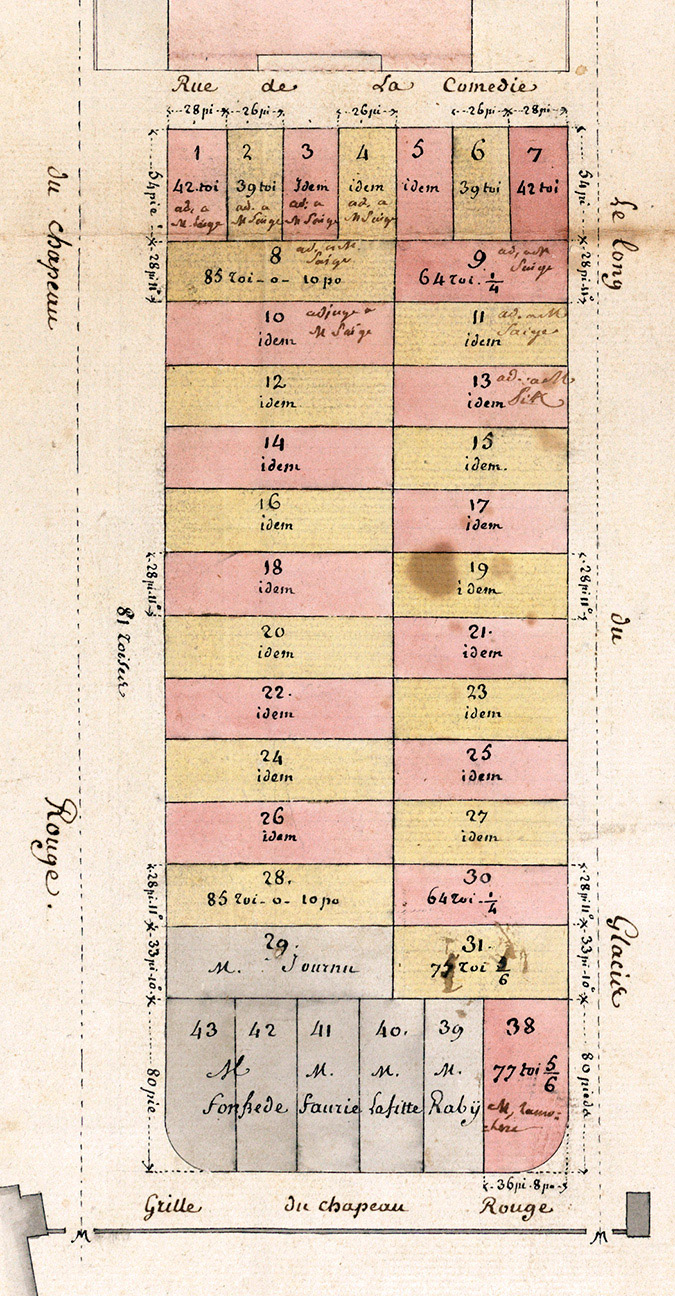 Rue de La Comedie
28 pi 26 pi 26 pi 26 pi 28 pi
54 pie
54 pi
1
42 toi
ad. a
M. Saige
2
39 toi
ad. a
M Saige
3
Idem
ad. a
M Saige
4
idem
ad. a
M Saige
5
idem
6
39 toi
7
42 toi
du chapeau
Rouge.
81 toises
Le long
du
Glacis
28 pi 11º
28 pi 11º
8
ad. a M.
Saige
85 toi - 0 - 10 po
9
ad. a M
Saige
64 toi. 1/4
10
adjugé a
M Saige
idem
11
ad. a M
Saige
idem
12
idem
13
ad. a M
idem
14
idem
15
idem.
16
idem
17
idem
28 pi 11º
28 pi 11º
18
idem
19
idem
20
idem
21.
idem
22.
idem
23
idem
24
idem
25
idem
26
idem
27
idem
28 pi 11º
28 pi 11º
28.
85 toi - 0 - 10 po
30
64 toi - 1/4
33 pi 10º
33 pi 10º
29.
M. Journu
31.
75 toi 5/6
80 pie
80 pieds
43 42
M
Fonfrede
41
M.
Faurie
40.
M.
Lafitte
39
M.
Raby
38
77 toi 5/6
36 pi 8 po
Grille du chapeau Rouge
M
M